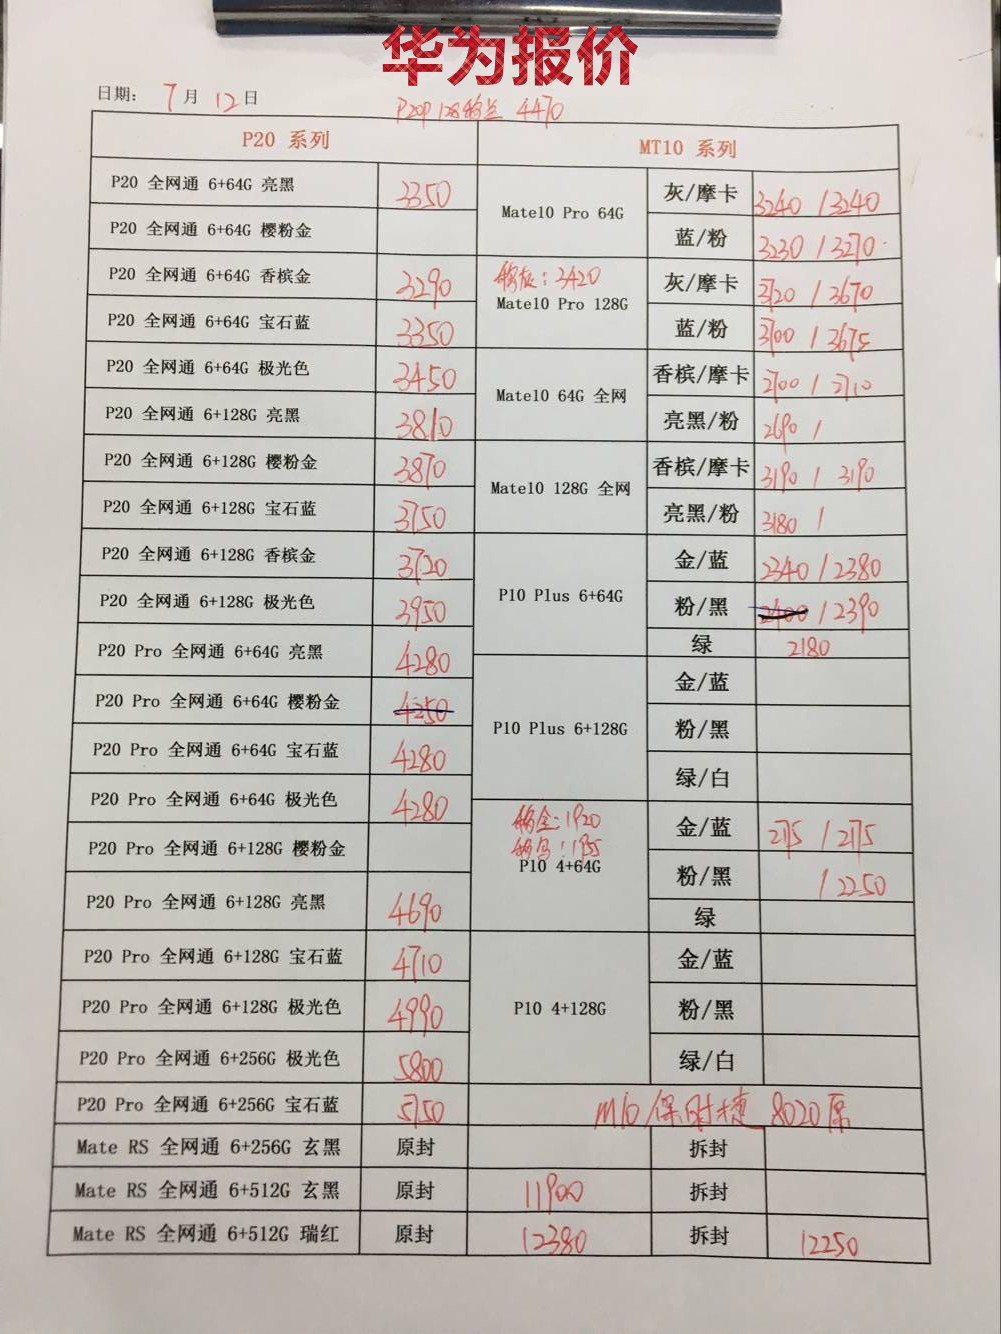 华为报价
日期: 7月12日
P20P 128 4470
P20 系列
MT10 系列
P20 全网通 6+64G 亮黑 3350
P20 全网通 6+64G 樱粉金
P20 全网通 6+64G 香槟金 3290
P20 全网通 6+64G 宝石蓝 3350
P20 全网通 6+64G 极光色 3450
P20 全网通 6+128G 亮黑 3810
P20 全网通 6+128G 樱粉金 3870
P20 全网通 6+128G 宝石蓝 3750
P20 全网通 6+128G 香槟金 3720
P20 全网通 6+128G 极光色 3950
P20 Pro 全网通 6+64G 亮黑 4280
P20 Pro 全网通 6+64G 樱粉金 4250
P20 Pro 全网通 6+64G 宝石蓝 4280
P20 Pro 全网通 6+64G 极光色 4280
P20 Pro 全网通 6+128G 樱粉金
P20 Pro 全网通 6+128G 亮黑 4690
P20 Pro 全网通 6+128G 宝石蓝 4710
P20 Pro 全网通 6+128G 极光色 4990
P20 Pro 全网通 6+256G 极光色 5800
P20 Pro 全网通 6+256G 宝石蓝 5750
Mate10 Pro 64G
灰/摩卡 3240 / 3240
蓝/粉 3230 / 3270
: 3420
Mate10 Pro 128G
灰/摩卡 3720 / 3670
蓝/粉 3700 / 3675
Mate10 64G 全网
香槟/摩卡 2700 / 2710
亮黑/粉 2690 /
Mate10 128G 全网
香槟/摩卡 3190 / 3190
亮黑/粉 3180 /
P10 Plus 6+64G
金/蓝 2340 / 2380
粉/黑 2400 / 2390
绿 2180
P10 Plus 6+128G
金/蓝
粉/黑
绿/白
金: 1920
: 1955
P10 4+64G
金/蓝 2175 / 2175
粉/黑 / 2250
绿
P10 4+128G
金/蓝
粉/黑
绿/白
M10 保时捷 8020原
Mate RS 全网通 6+256G 玄黑 原封 拆封
Mate RS 全网通 6+512G 玄黑 原封 11900 拆封
Mate RS 全网通 6+512G 瑞红 原封 12380 拆封 12250